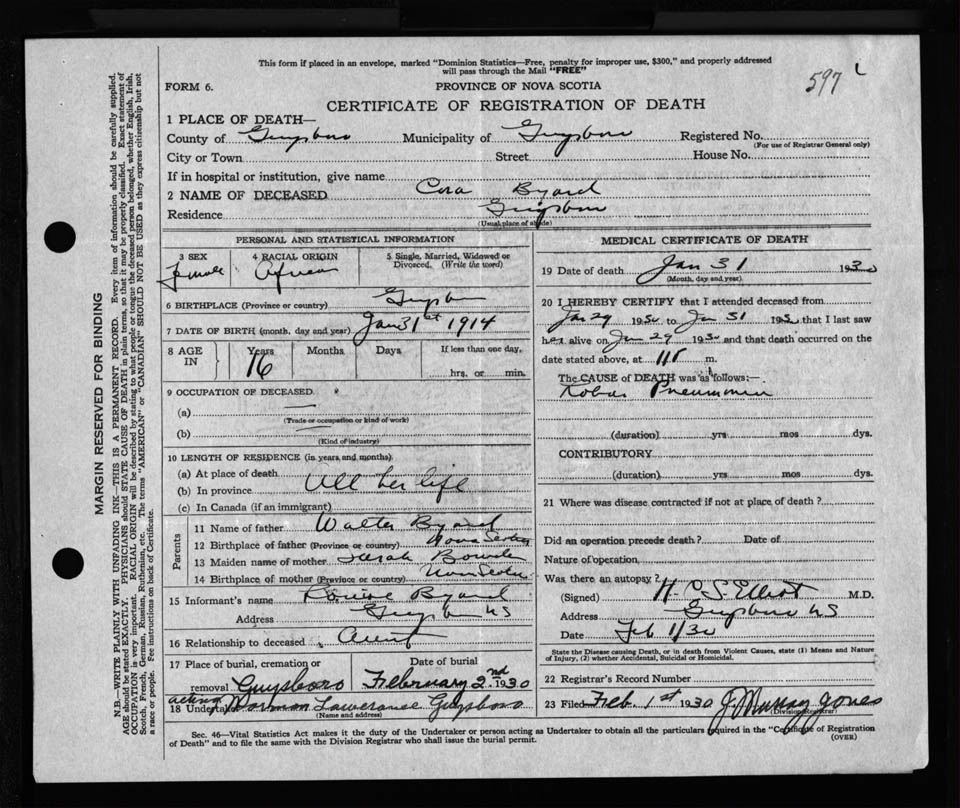 This form if placed in an envelope, marked "Dominion Statistics—Free, penalty for improper use, $300," and properly addressed
will pass through the Mail "FREE"
597
FORM 6.
PROVINCE OF NOVA SCOTIA
CERTIFICATE OF REGISTRATION OF DEATH
1 PLACE OF DEATH—
County of Guysboro Municipality of Guysboro Registered No.
(For use of Registrar General only)
City or Town Street House No.
If in hospital or institution, give name
2 NAME OF DECEASED Cora Byard
Residence Guysboro
(Usual place of abode)
PERSONAL AND STATISTICAL INFORMATION
3 SEX 4 RACIAL ORIGIN 5 Single, Married, Widowed or
Divorced. (Write the word)
Female African
6 BIRTHPLACE (Province or country) Guysboro
7 DATE OF BIRTH (month, day and year) Jan 31st 1914
8 AGE IN Years Months Days If less than one day,
16 hrs. or min.
9 OCCUPATION OF DECEASED
(a)
(Trade or occupation or kind of work)
(b)
(Kind of industry)
10 LENGTH OF RESIDENCE (in years and months)
(a) At place of death
(b) In province All her life
(c) In Canada (if an immigrant)
Parents
11 Name of father Walter Byard
12 Birthplace of father (Province or country) Nova Scotia
13 Maiden name of mother Sarah
14 Birthplace of mother (Province or country) Nova Scotia
15 Informant's name Louise Byard
Address Guysboro NS
16 Relationship to deceased Aunt
17 Place of burial, cremation or Date of burial
removal Guysboro February 2nd 1930
acting
18 Undertaker Norman Lawerance Guysboro
(Name and address)
MEDICAL CERTIFICATE OF DEATH
19 Date of death Jan 31 1930
(Month, day and year)
20 I HEREBY CERTIFY that I attended deceased from
Jan 29 1930 to Jan 31 1930 that I last saw
her alive on Jan 29 1930 and that death occurred on the
date stated above, at 11 P m.
The CAUSE of DEATH was as follows:—
Lobar Pneumonia
(duration) yrs mos dys.
CONTRIBUTORY
(duration) yrs mos dys.
21 Where was disease contracted if not at place of death?
Did an operation precede death? Date of
Nature of operation
Was there an autopsy?
(Signed) H. C. S. Elliot M.D.
Address Guysboro NS
Date Feb 1/30
State the Disease causing Death, or in death from Violent Causes, state (1) Means and Nature
of Injury, (2) whether Accidental, Suicidal or Homicidal.
22 Registrar's Record Number
23 Filed Feb. 1st 1930 J. Murray Jones
(Division Registrar)
Sec. 46—Vital Statistics Act makes it the duty of the Undertaker or person acting as Undertaker to obtain all the particulars required in the "Certificate of Registration
of Death" and to file the same with the Division Registrar who shall issue the burial permit.
(OVER)
MARGIN RESERVED FOR BINDING
N.B.—WRITE PLAINLY WITH UNFADING INK—THIS IS A PERMANENT RECORD. Every item of information should be carefully supplied.
AGE should be stated EXACTLY. PHYSICIANS should STATE CAUSE OF DEATH in plain terms, so that it may be properly classified. Exact statement of
OCCUPATION is very important. RACIAL ORIGIN will be described by stating to what people or tongue the deceased person belonged, whether English, Irish,
Scotch, French, German, Russian, Ruthenian, etc. The terms "AMERICAN" or "CANADIAN" SHOULD NOT BE USED as they express citizenship but not
a race or people. Fee instructions on back of Certificate.